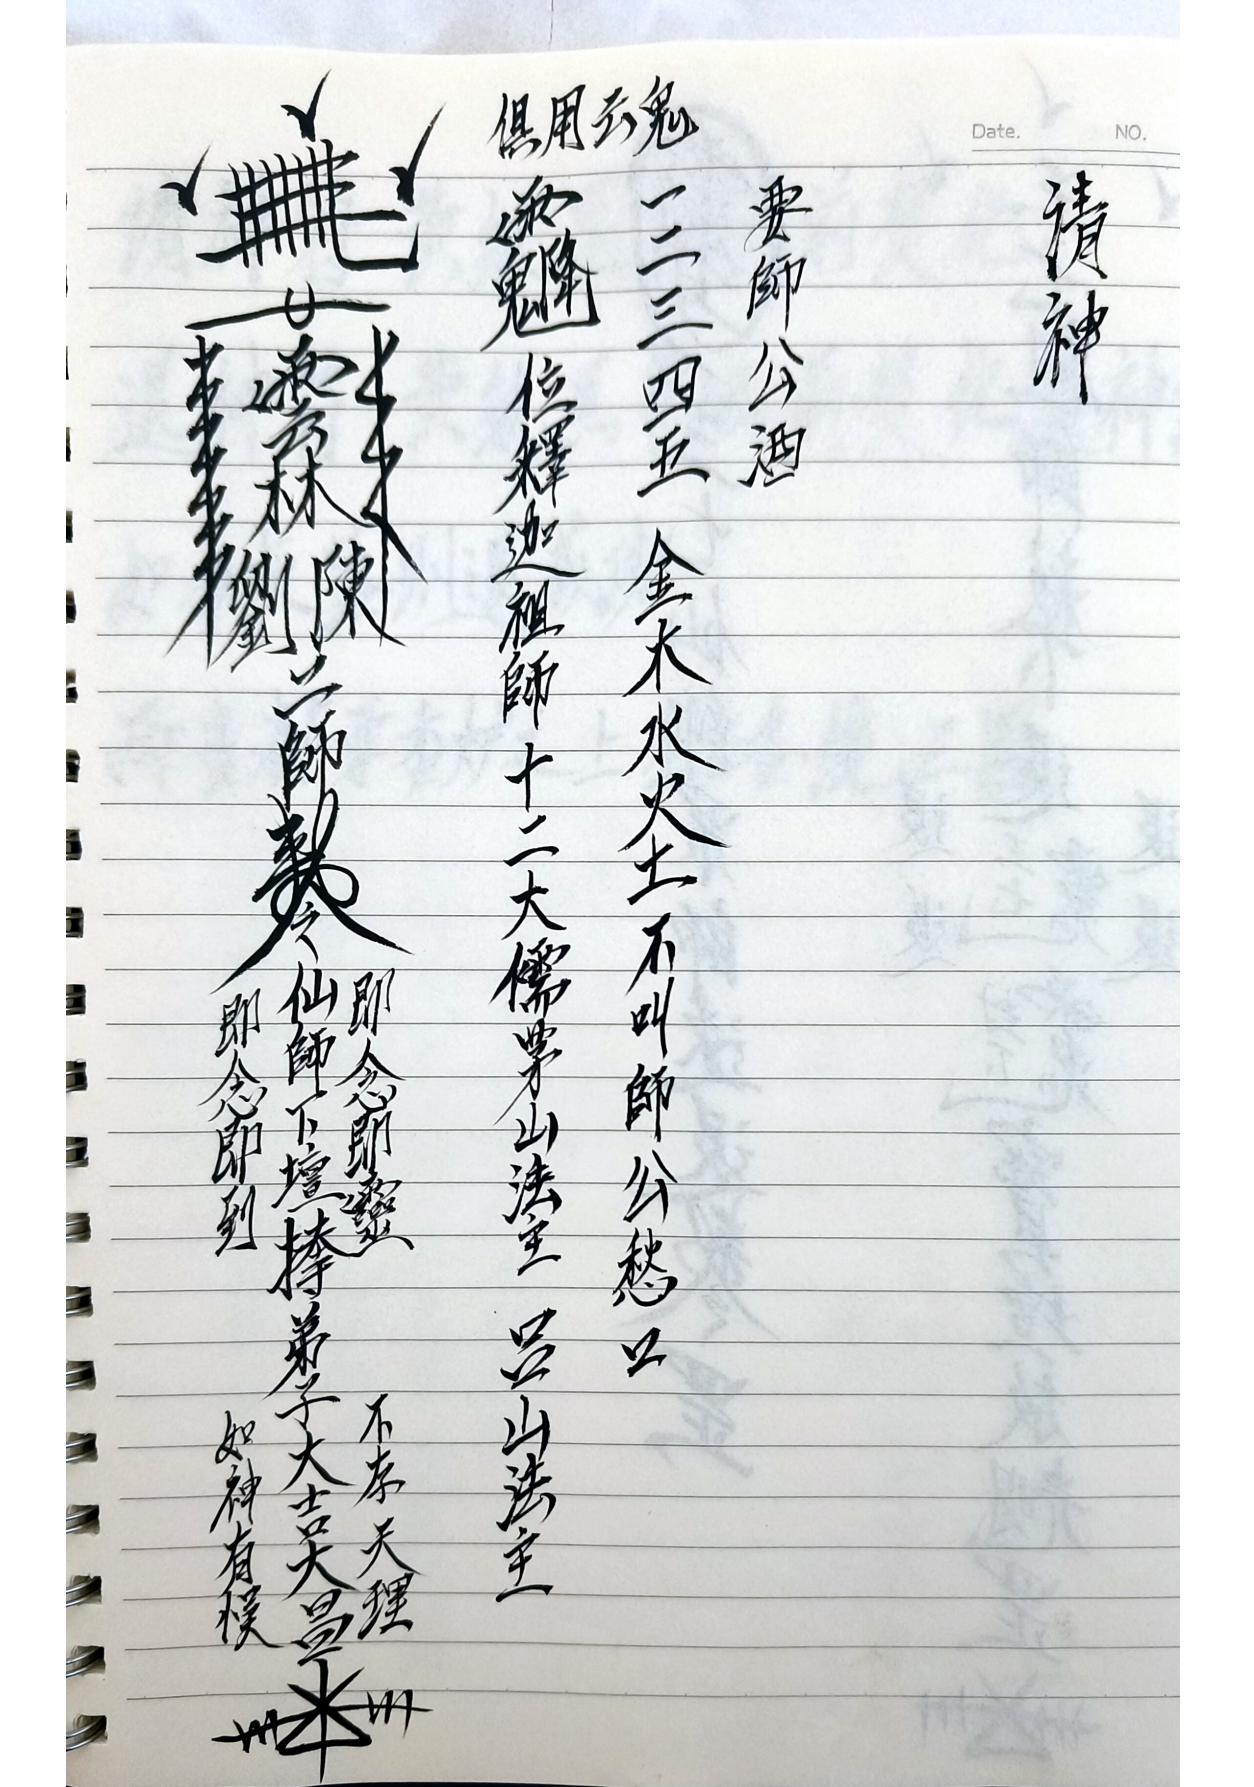 Date. NO.
請神
要師公酒
一二三四五 金木水火土 不叫師公愁口
俱用云鬼
位釋迦祖師十二大儒茅山法主 呂山法主
林
陳
劉
二師
仙師下壇 弟子大吉大昌
即念即靈
即念即到
不存天理
如神有